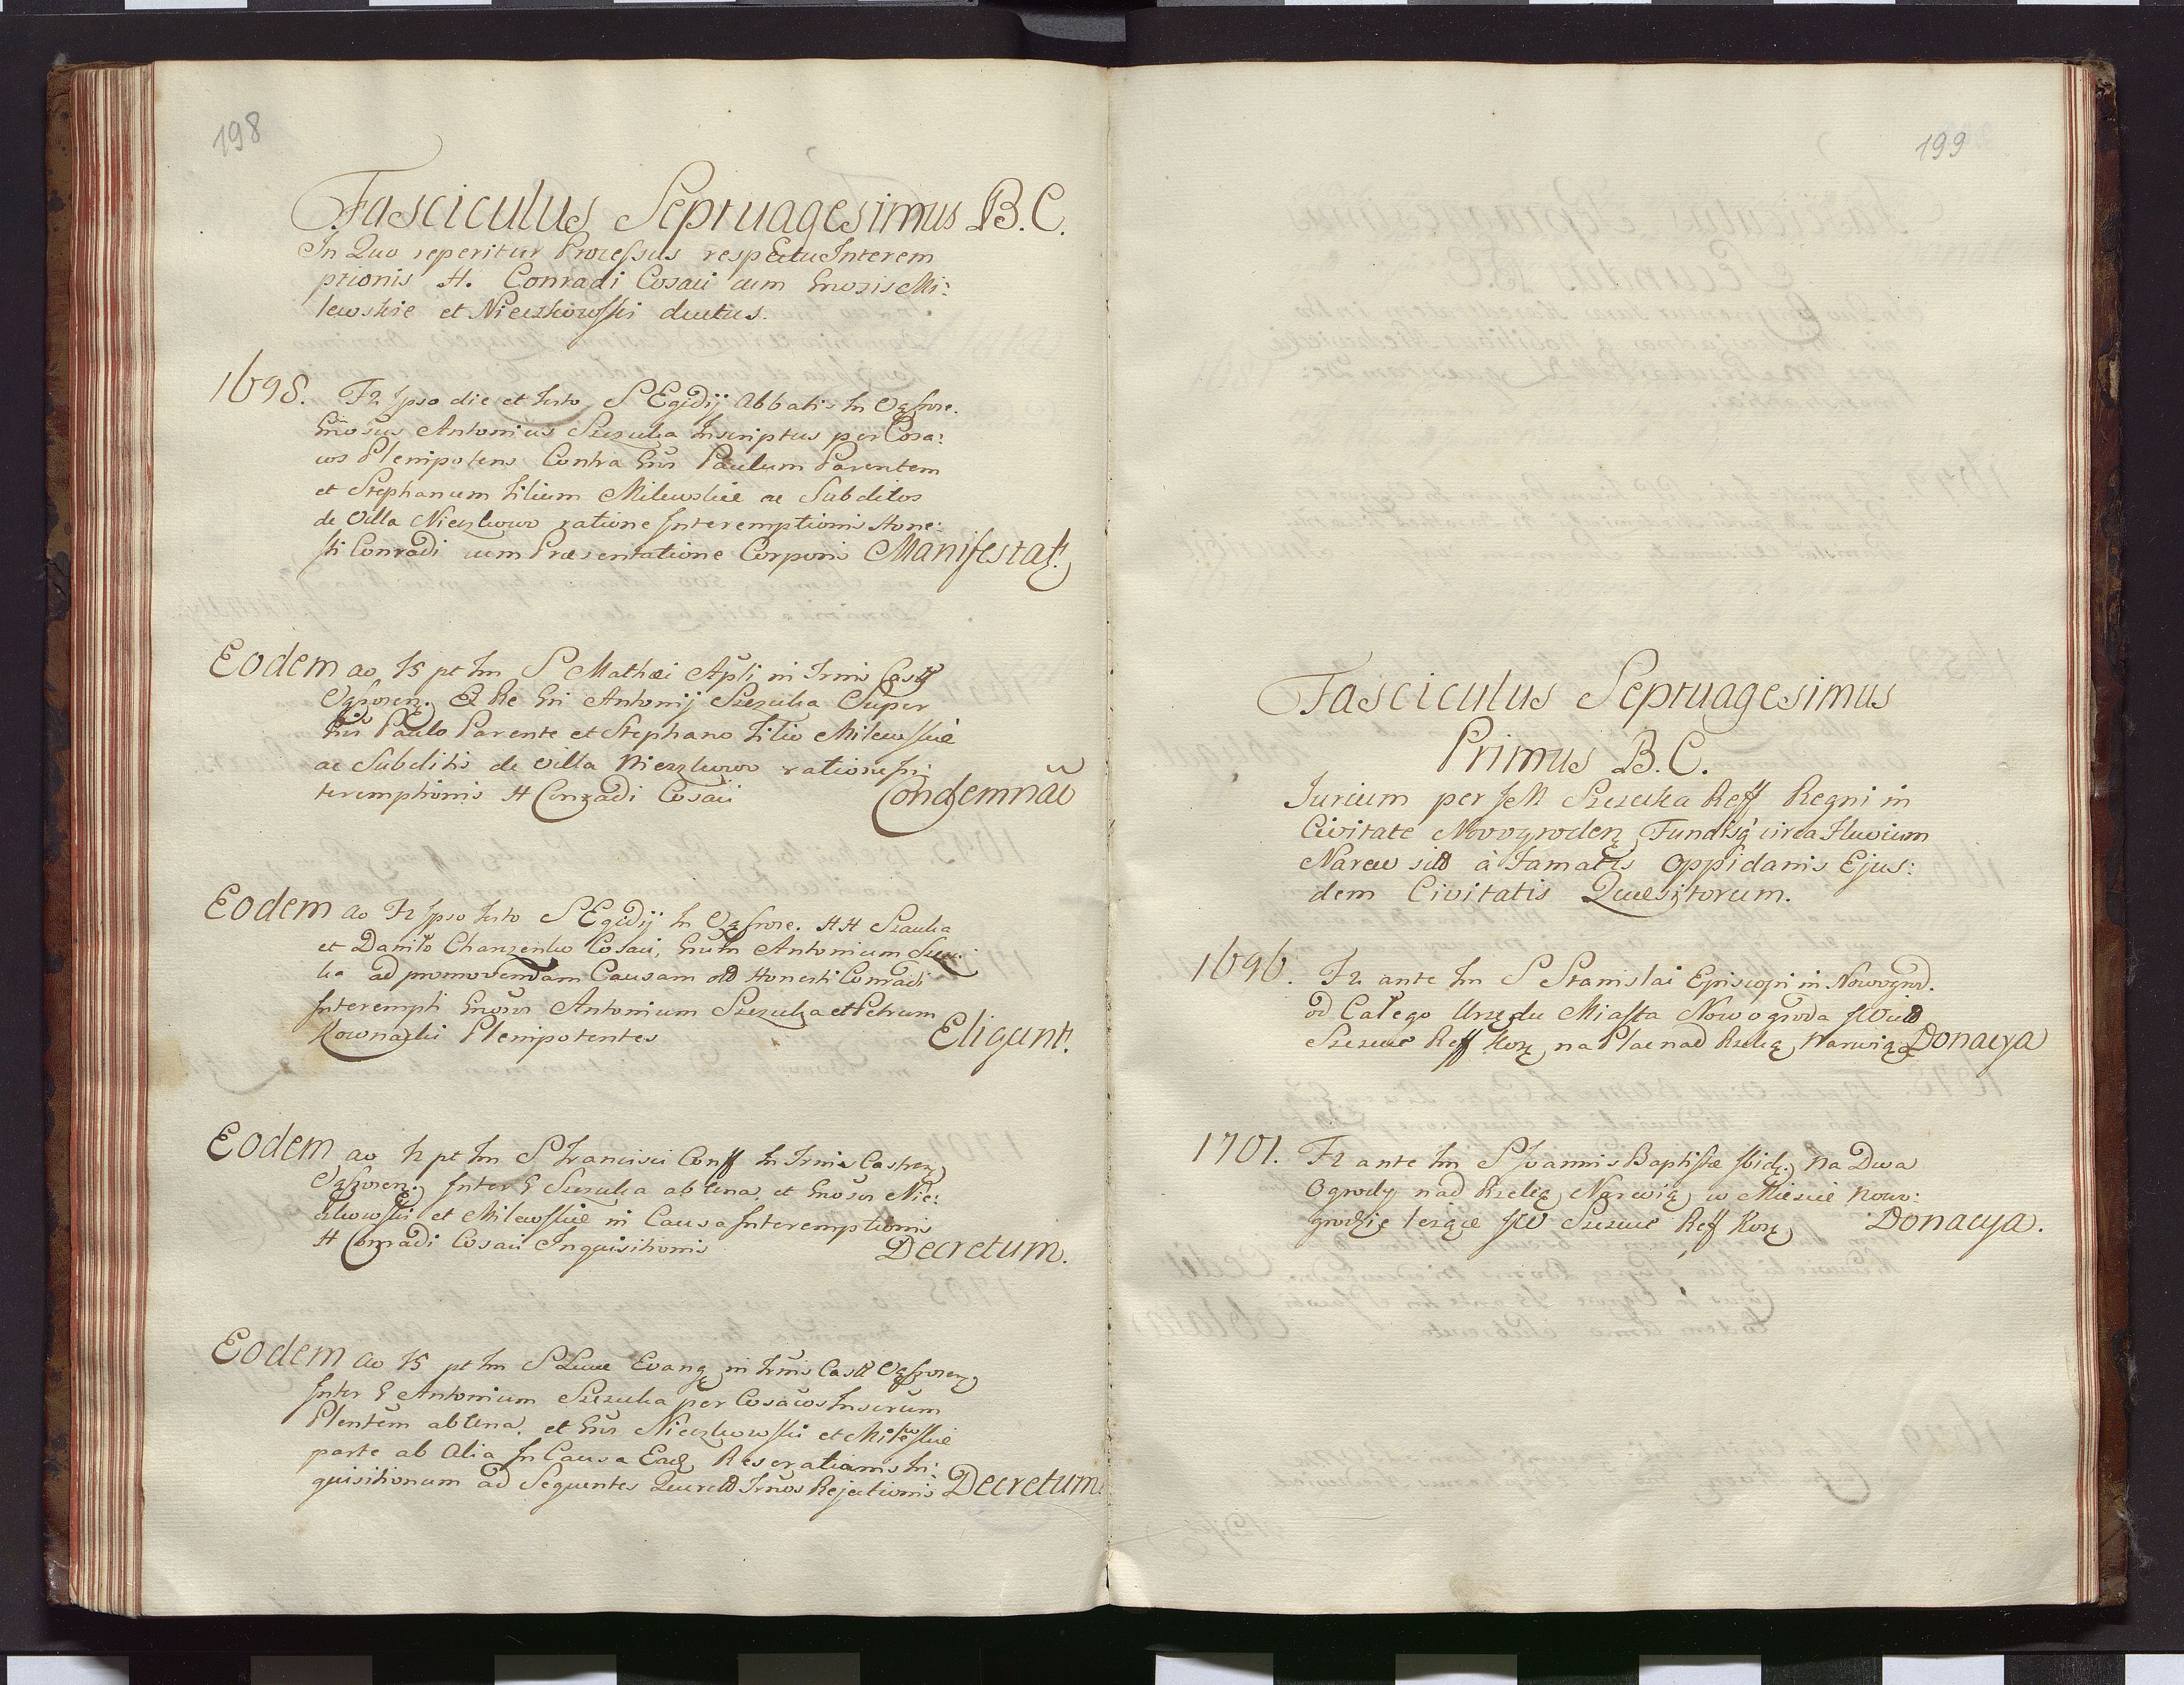 198
Fasciculus Septuagesimus B.C.
In Quo reperitur Processus respectu Interem
ptionis H. Conradi Cosaci cum Gnosis Mi:
lewskie et Nieczkowski ductus.
1698. F2 Ipso die et festo S Egidij Abbatis In
Gnosus Antonius Szczuka Inscriptus per Cosa:
cos Plenipotens Contra Gnos Paulum Parentem
et Stephanum filium Milewskie ac Subditos
de Villa Nieczkowo ratione Interemptionis Hone:
sti Conradi cum Praesentatione Corporis Manifestat.
Eodem ao f5 pt fm S Mathaei Apli in Trmis
Ex Re Gni Antonij Szczuka Super
Gnis Paulo Parente et Stephano filio Milewskie
ac Subditis de Villa Nieczkowo ratione In
teremptionis H Conradi Cosaci Condemnao
Eodem ao F2 Ipso festo S Egidij In HH Szauka
et Daniło Chanzenko Cosaci, Gnum Antonium Szczu:
ka ad promovendam Causam Honesti Conradi
Interempti Gnosos Antonium Szczuka et Petrum
Kownacki Plenipotentes Eligunt.
Eodem ao f2 pt fm S Francisci Conff In Trmis Castren
Inter G Szczuka ab Una, et Gnosos Nie:
czkowski et Milewskie in Causa Interemptionis
H Conradi Cosaci Inquisitionis Decretum.
Eodem ao f5 pt fm S Lucae Evang in Trmis
Inter G Antonium Szczuka per Cosacos Inscrum
Plentem ab Una, et Gnos Nieczkowski et Milewskie
parte ab Alia In Causa Ead Reservationis In:
quisitionum ad Sequentes Trmos Rejectionis Decretum.
199
Fasciculus Septuagesimus
Primus B.C.
Iurium per Szczuka Reff Regni in
Civitate Novogroden Fundisq circa Fluvium
Narew à Famatis Oppidanis Ejus:
dem Civitatis Quaesitorum.
1696. F2 ante fm S Stanislai Episcopi in Nowogrod.
od Całego Urzędu Miasta Nowogroda
Szczuce Reff Kor na Plac nad Rzeką Narwią Donacya
1701. F2 ante fm S Joannis Baptistae Ibid. na Dwa
Ogrody nad Rzeką Narwią w Miescie Nowo:
grodzie lezące Szczuce Reff Kor Donacya.